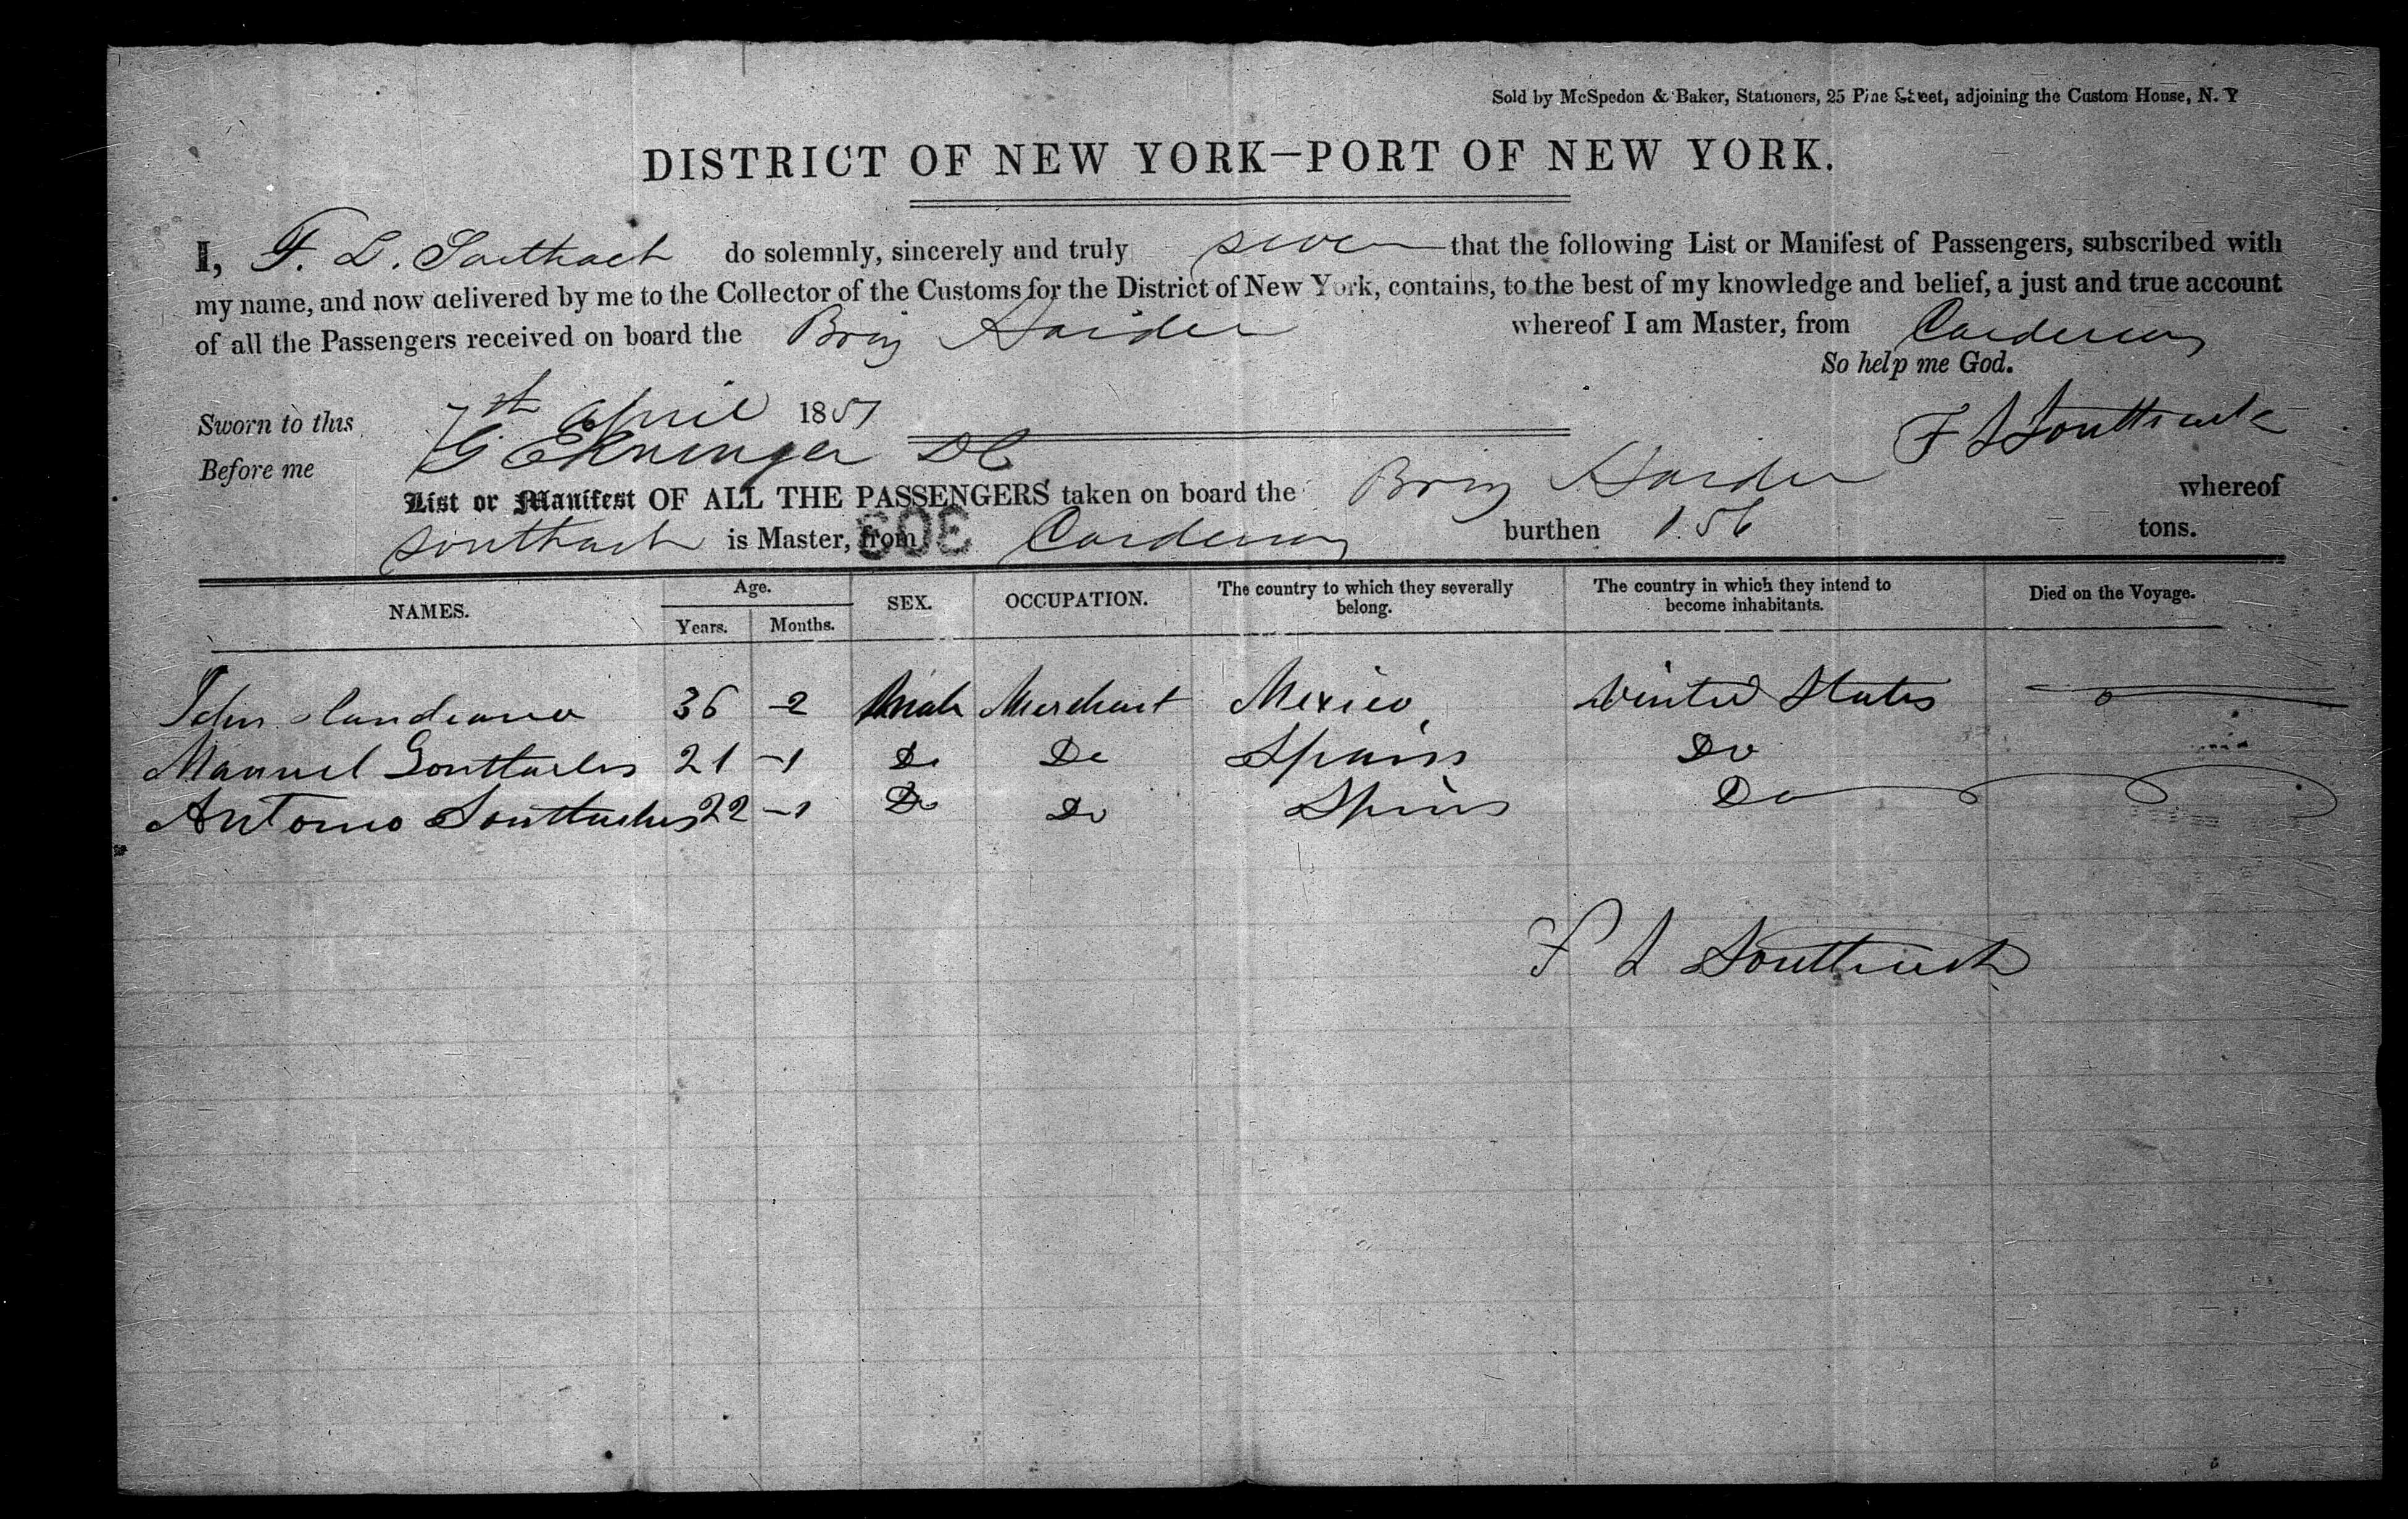 Sold by McSpedon & Baker, Stationers, 25 Pine Street, adjoining the Custom House, N. Y
DISTRICT OF NEW YORK—PORT OF NEW YORK.
I, F. L. Southack do solemnly, sincerely and truly swear that the following List or Manifest of Passengers, subscribed with
my name, and now delivered by me to the Collector of the Customs for the District of New York, contains, to the best of my knowledge and belief, a just and true account
of all the Passengers received on board the Brig whereof I am Master, from Cardenas
So help me God.
Sworn to this 7th April 1851
F L Southack
Before me G Ehninger DC
List or Manifest OF ALL THE PASSENGERS taken on board the Brig whereof
Southack is Master, from Cardenas burthen 156 tons.
303
NAMES. Age. SEX. OCCUPATION. The country to which they severally belong. The country in which they intend to become inhabitants. Died on the Voyage.
Years. Months.
John 36 - 2 Male Merchant Mexico United States
Manuel 21 - 1 Do Do Spain Do
Antonio 22 - 1 Do Do Spain Do
F L Southack